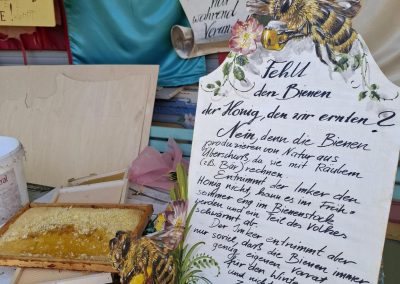 E !
nur
während
Vorrat
Fehlt
den Bienen
der Honig, den wir ernten?
Nein, denn die Bienen
produzieren von Natur aus
Überschuß, da sie mit Räubern
(z.B. Bär) rechnen.
Entnimmt der Imker den
Honig nicht, kann es im Früh=
sommer eng im Bienenstock
werden und ein Teil des Volkes
schwärmt ab.
Der Imker entnimmt aber
nur soviel, daß die Bienen immer
genug eigenen Vorrat
für den Winter
und